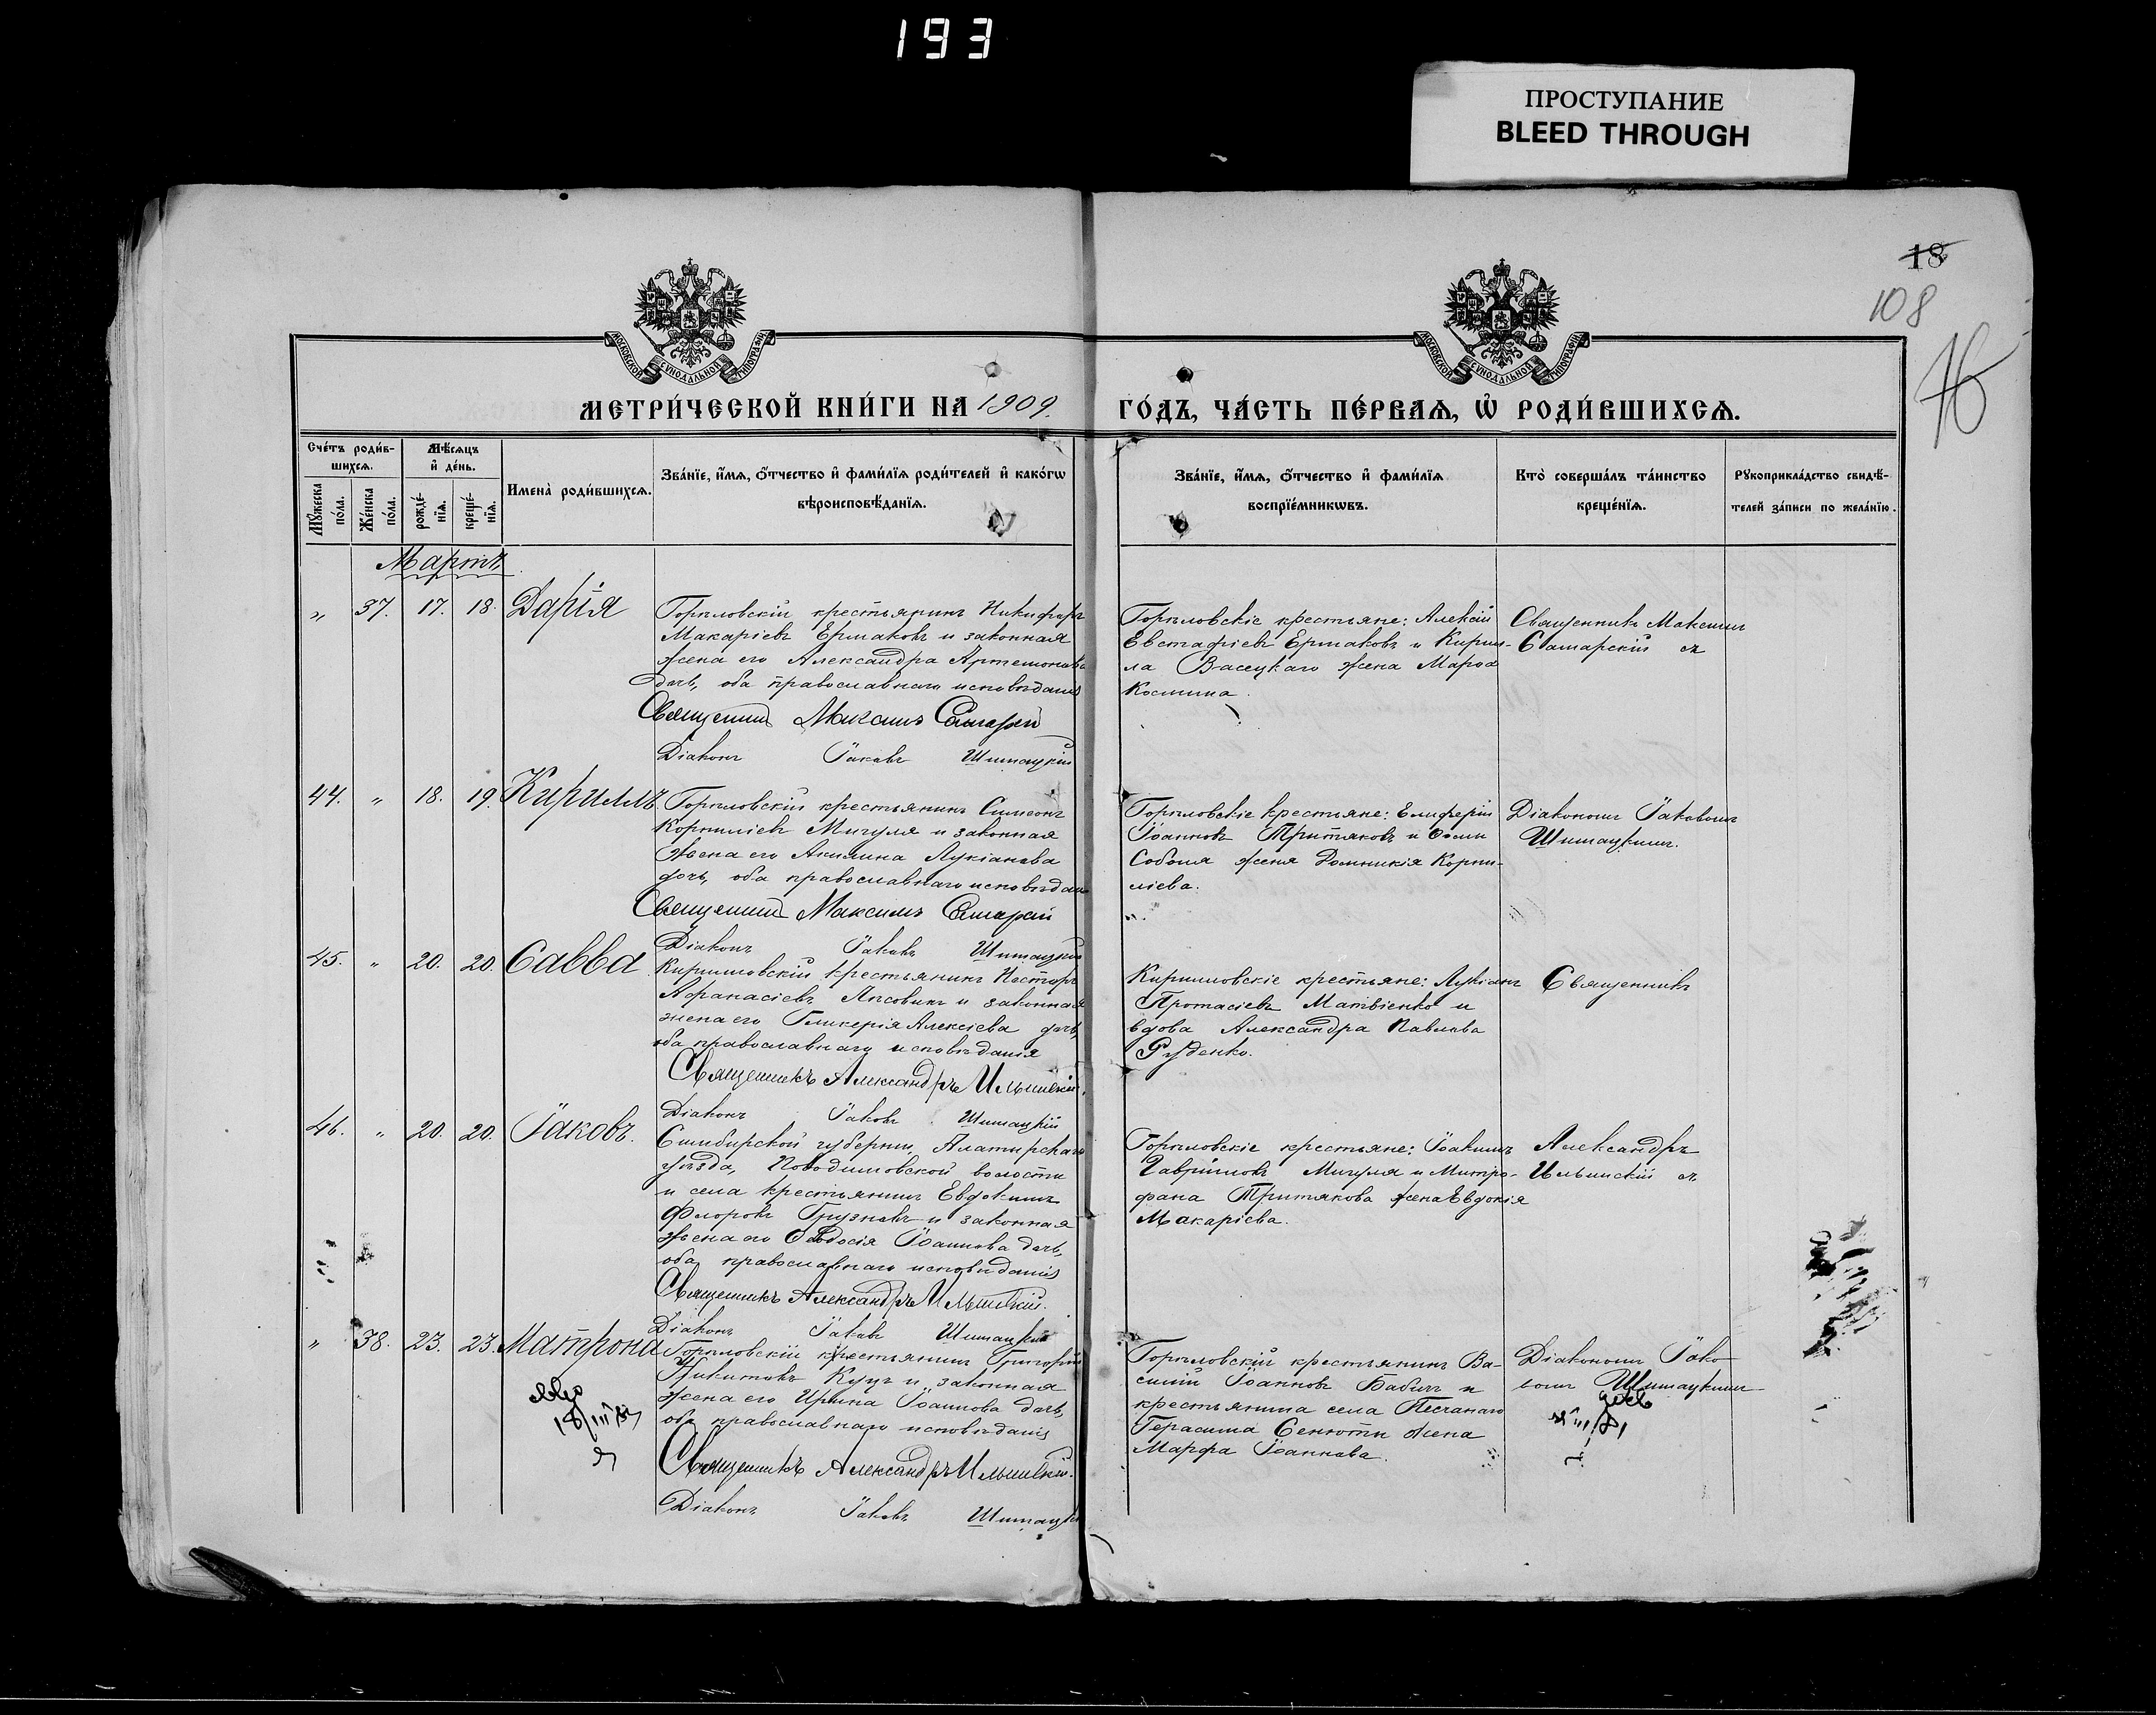 193
ПРОСТУПАНИЕ
BLEED THROUGH
18
108
МОСКОВСКОЙ СѴНОДАЛЬНОЙ ТИПОГРАФІИ
МОСКОВСКОЙ СѴНОДАЛЬНОЙ ТИПОГРАФІИ
МЕТРИ́ЧЕСКОЙ КНИ́ГИ НА 1909.
ГО́ДЪ, ЧА́СТЬ ПЕ́РВАѦ, Ѡ҆ РОДИ́ВШИХСѦ.
Сче́тъ роди́в-
шихсѧ.
Мѣ́сѧцъ
и҆ де́нь.
Мꙋ́жеска
по́ла.
Же́нска
по́ла.
рожде́-
нїѧ.
креще́-
нїѧ.
Имена̀ роди́вшихсѧ.
Зва́нїе, и҆́мѧ, ѻ҆́тчество и҆ фами́лїѧ роди́телей и҆ како́гѡ
вѣроисповѣ́данїѧ.
Зва́нїе, и҆́мѧ, ѻ҆́тчество и҆ фами́лїѧ
воспрїе́мникѡвъ.
Кто̀ соверша́лъ та́инство
креще́нїѧ.
Рꙋкоприкла́дство свидѣ́-
телей за́писи по жела́нїю.
Мартъ
„ 37. 17. 18. Дарія
Горѣловскій крестьянинъ Никифоръ
Макаріевъ Ермаковъ и законная
жена его Александра Артемонова
дочь, оба православнаго исповѣданія
Священникъ Максимъ Самарскій
Діаконъ Іаковъ Шишацкій
Горѣловскіе крестьяне: Алексій
Евстафіевъ Ермаковъ и Кирил-
ла Васецкаго жена Марѳа
Космина.
Священникъ Максимъ
Самарскій съ
44. „ 18. 19. Кириллъ.
Горѣловскій крестьянинъ Симеонъ
Корниліевъ Мигуля и законная
жена его Акилина Лукіанова
дочь, оба православнаго исповѣданія
Священникъ Максимъ Самарскій
Діаконъ Іаковъ Шишацкій
Горѣловскіе крестьяне: Елиферій
Іоанновъ Притяковъ и Ѳомы
Соболя жена Домникія Корни-
ліева.
Діакономъ Іаковомъ
Шишацкимъ.
45. „ 20. 20. Савва
Кирилловскій крестьянинъ Несторъ
Аѳанасіевъ Лѣсовинъ и законная
жена его Гликерія Алексіева дочь,
оба православнаго исповѣданія
Священникъ Александръ Ильинскій.
Діаконъ Іаковъ Шишацкій
Кирилловскіе крестьяне: Лукіанъ
Протасіевъ Матвіенко и
вдова Александра Павлова
Руденко.
Священникъ
46. „ 20. 20. Іаковъ.
Симбирской губерніи, Алатырскаго
уѣзда,
волости
и села крестьянинъ Евдокимъ
Флоровъ Грузневъ и законная
жена его Ѳеодосія Іоаннова дочь,
оба православнаго исповѣданія
Священникъ Александръ Ильинскій.
Діаконъ Іаковъ Шишацкій
Горѣловскіе крестьяне: Іоакимъ
Гавріиловъ Мигуля и Митро-
фана Притякова жена Евдокія
Макаріева.
Александръ
Ильинскій съ
„ 38. 23. 23. Матрона
Горѣловскій крестьянинъ Григорій
Никитовъ Куцъ и законная
жена его Ирина Іоаннова дочь,
оба православнаго исповѣданія
Священникъ Александръ Ильинскій.
Діаконъ Іаковъ Шишацкій
Горѣловскій крестьянинъ Ва-
силій Іоанновъ Бабичъ и
крестьянина села Песчанаго
Герасима Сенюты жена
Марѳа Іоаннова.
Діакономъ Іако-
вомъ Шишацкимъ